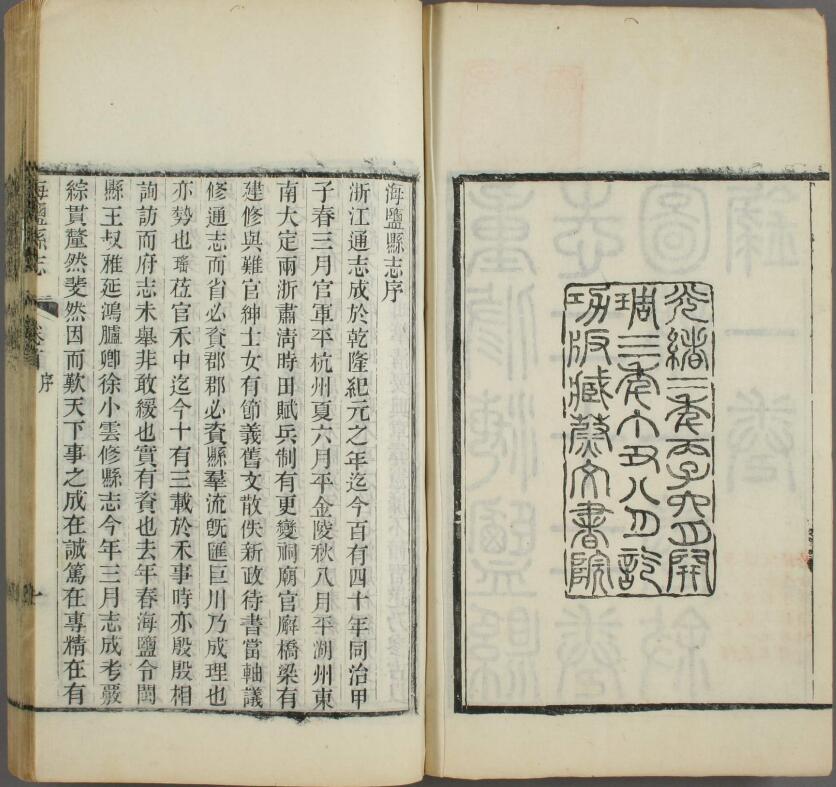 光緒二年丙子六月開
琱三年丁丑八月訖
功版藏蔚文書院
海鹽縣志序
浙江通志成於乾隆紀元之年迄今百有四十年同治甲
子春三月官軍平杭州夏六月平金陵秋八月平湖州東
南大定兩浙肅清時田賦兵制有更變祠廟官廨橋梁有
建修與難官紳士女有節義舊文散佚新政待書當軸議
修通志而省必資郡郡必資縣羣流旣匯巨川乃成理也
亦勢也瑤莅官禾中迄今十有三載於禾事時亦殷殷相
詢訪而府志未舉非敢緩也實有資也去年春海鹽令閩
縣王叔雅延鴻臚卿徐小雲修縣志今年三月志成考覈
綜貫釐然斐然因而歎天下事之成在誠篤在專精在有
海鹽縣志 卷首 序